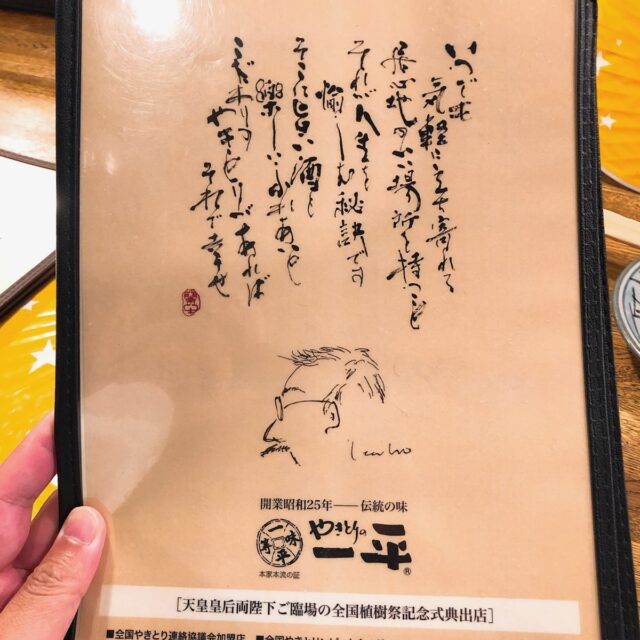 いつでも
気軽に立ち寄れて
居心地のいい場所を持つこと
それが人生を
愉しむ秘訣です
そこに旨い酒と
楽しいふれあいと
こだわりの
やきとりがあれば
それで幸せ
開業昭和25年——伝統の味
やきとりの
一平®
本家本流の証
［天皇皇后両陛下ご臨場の全国植樹祭記念式典出店］
■全国やきとり連絡協議会加盟店